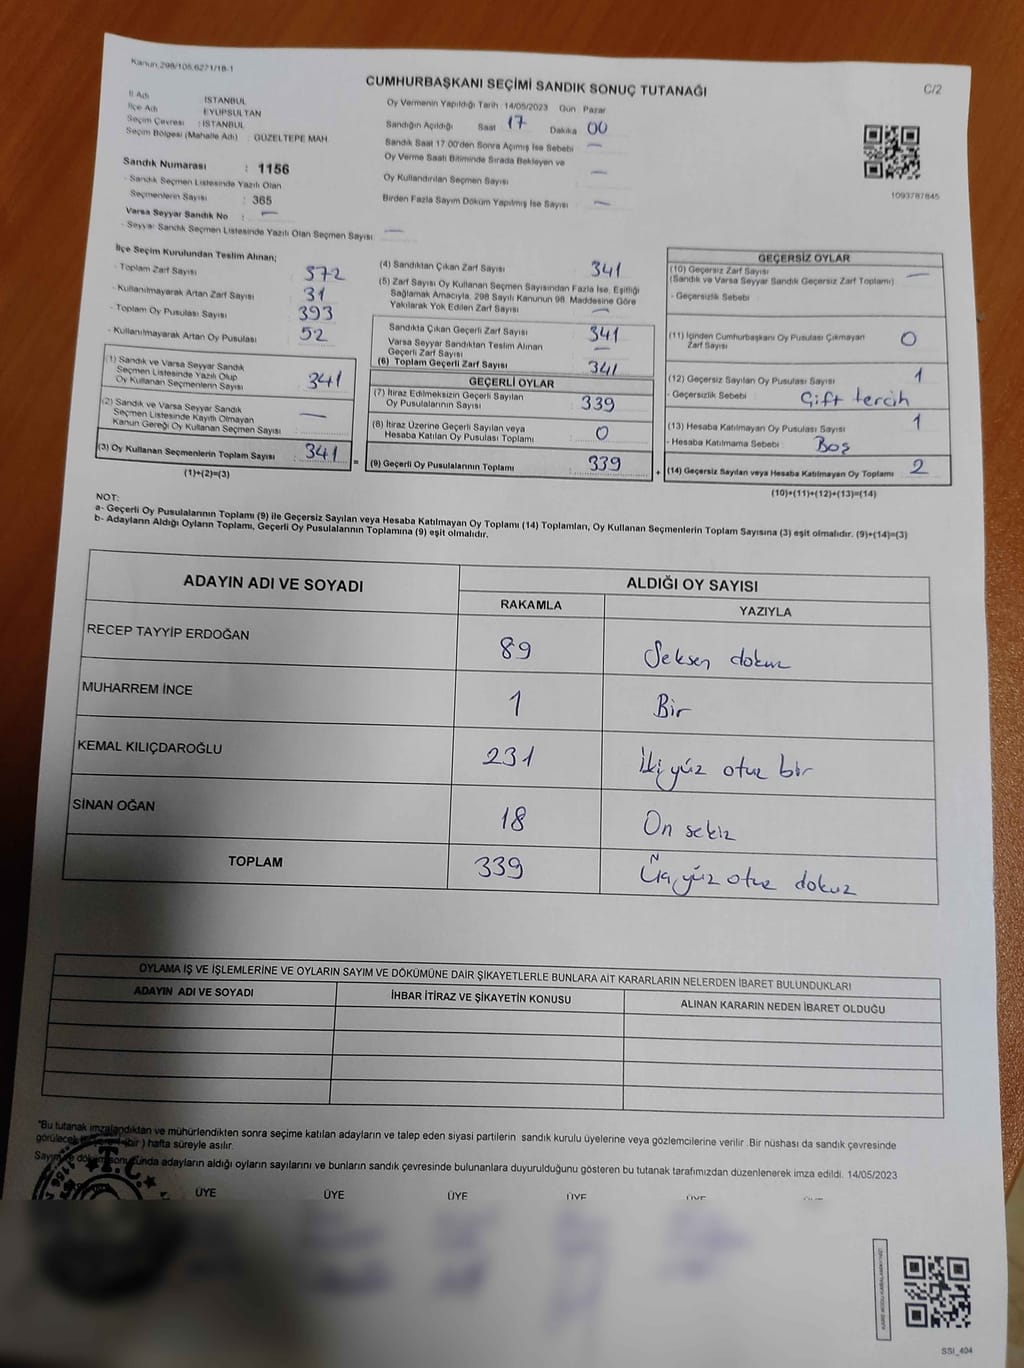 Kanun.298/105,6271/18-1
CUMHURBAŞKANI SEÇİMİ SANDIK SONUÇ TUTANAĞI
C/2
İl Adı : İSTANBUL
İlçe Adı EYÜPSULTAN
Seçim Çevresi : İSTANBUL
Seçim Bölgesi (Mahalle Adı) : GÜZELTEPE MAH
Sandık Numarası : 1156
- Sandık Seçmen Listesinde Yazılı Olan
Seçmenlerin Sayısı : 365
Varsa Seyyar Sandık No : —
- Seyyar Sandık Seçmen Listesinde Yazılı Olan Seçmen Sayısı: —
Oy Vermenin Yapıldığı Tarih : 14/05/2023 Gün : Pazar
Sandığın Açıldığı Saat 17 Dakika 00
Sandık Saat 17:00'den Sonra Açımış İse Sebebi —
Oy Verme Saati Bitiminde Sırada Bekleyen ve
Oy Kullandırılan Seçmen Sayısı —
Birden Fazla Sayım Döküm Yapılmış İse Sayısı —
1093787845
İlçe Seçim Kurulundan Teslim Alınan;
- Toplam Zarf Sayısı 372
- Kullanılmayarak Artan Zarf Sayısı 31
- Toplam Oy Pusulası Sayısı 393
- Kullanılmayarak Artan Oy Pusulası 52
(1) Sandık ve Varsa Seyyar Sandık
Seçmen Listesinde Yazılı Olup
Oy Kullanan Seçmenlerin Sayısı 341
(2) Sandık ve Varsa Seyyar Sandık
Seçmen Listesinde Kayıtlı Olmayan
Kanun Gereği Oy Kullanan Seçmen Sayısı : —
(3) Oy Kullanan Seçmenlerin Toplam Sayısı 341
(1)+(2)=(3)
(4) Sandıktan Çıkan Zarf Sayısı 341
(5) Zarf Sayısı Oy Kullanan Seçmen Sayısından Fazla İse, Eşitliği
Sağlamak Amacıyla, 298 Sayılı Kanunun 98. Maddesine Göre
Yakılarak Yok Edilen Zarf Sayısı —
Sandıkta Çıkan Geçerli Zarf Sayısı 341
Varsa Seyyar Sandıktan Teslim Alınan
Geçerli Zarf Sayısı —
(6) Toplam Geçerli Zarf Sayısı 341
GEÇERLİ OYLAR
(7) İtiraz Edilmeksizin Geçerli Sayılan
Oy Pusulalarının Sayısı 339
(8) İtiraz Üzerine Geçerli Sayılan veya
Hesaba Katılan Oy Pusulası Toplamı 0
= (9) Geçerli Oy Pusulalarının Toplamı 339 +
GEÇERSİZ OYLAR
(10) Geçersiz Zarf Sayısı —
(Sandık ve Varsa Seyyar Sandık Geçersiz Zarf Toplamı)
- Geçersizlik Sebebi :
(11) İçinden Cumhurbaşkanı Oy Pusulası Çıkmayan
Zarf Sayısı 0
(12) Geçersiz Sayılan Oy Pusulası Sayısı 1
- Geçersizlik Sebebi : Çift tercih
(13) Hesaba Katılmayan Oy Pusulası Sayısı 1
- Hesaba Katılmama Sebebi : Boş
(14) Geçersiz Sayılan veya Hesaba Katılmayan Oy Toplamı 2
(10)+(11)+(12)+(13)=(14)
NOT:
a- Geçerli Oy Pusulalarının Toplamı (9) ile Geçersiz Sayılan veya Hesaba Katılmayan Oy Toplamı (14) Toplamları, Oy Kullanan Seçmenlerin Toplam Sayısına (3) eşit olmalıdır. (9)+(14)=(3)
b- Adayların Aldığı Oyların Toplamı, Geçerli Oy Pusulalarının Toplamına (9) eşit olmalıdır.
ADAYIN ADI VE SOYADI ALDIĞI OY SAYISI
RAKAMLA YAZIYLA
RECEP TAYYİP ERDOĞAN 89 Seksen dokuz
MUHARREM İNCE 1 Bir
KEMAL KILIÇDAROĞLU 231 İki yüz otuz bir
SİNAN OĞAN 18 On sekiz
TOPLAM 339 Üç yüz otuz dokuz
OYLAMA İŞ VE İŞLEMLERİNE VE OYLARIN SAYIM VE DÖKÜMÜNE DAİR ŞİKAYETLERLE BUNLARA AİT KARARLARIN NELERDEN İBARET BULUNDUKLARI
ADAYIN ADI VE SOYADI İHBAR İTİRAZ VE ŞİKAYETİN KONUSU ALINAN KARARIN NEDEN İBARET OLDUĞU
"Bu tutanak imzalandıktan ve mühürlendikten sonra seçime katılan adayların ve talep eden siyasi partilerin sandık kurulu üyelerine veya gözlemcilerine verilir. Bir nüshası da sandık çevresinde
görülecek bir yere 1 (bir) hafta süreyle asılır.
Sayım ve döküm sonucunda adayların aldığı oyların sayılarını ve bunların sandık çevresinde bulunanlara duyurulduğunu gösteren bu tutanak tarafımızdan düzenlenerek imza edildi. 14/05/2023
T.C.
ÜYE ÜYE ÜYE ÜYE ÜYE ÜYE
SSI_404